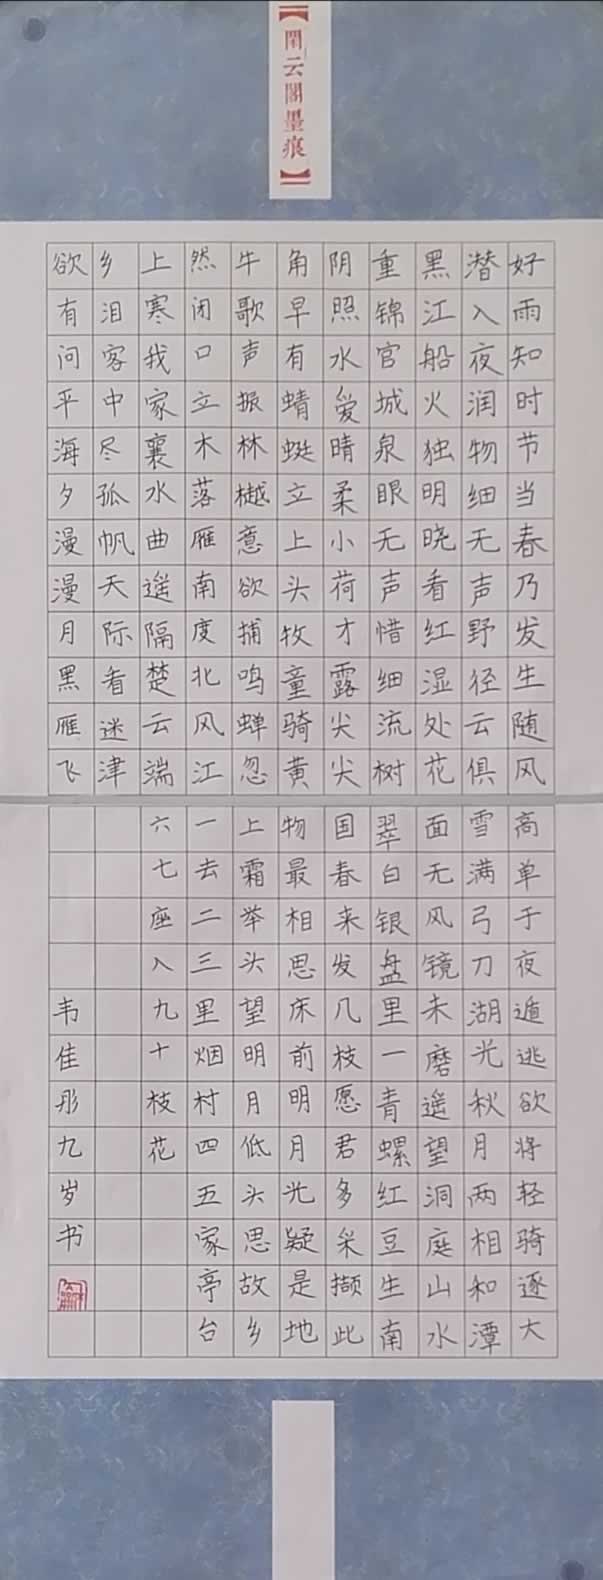 【閑云閣墨痕】
好雨知时节当春乃发生随风
潜入夜润物细无声野径云俱
黑江船火独明晓看红湿处花
重锦官城泉眼无声惜细流树
阴照水爱晴柔小荷才露尖尖
角早有蜻蜓立上头牧童骑黄
牛歌声振林樾意欲捕鸣蝉忽
然闭口立木落雁南度北风江
上寒我家襄水曲遥隔楚云端
乡泪客中尽孤帆天际看迷津
欲有问平海夕漫漫月黑雁飞
高单于夜遁逃欲将轻骑逐大
雪满弓刀湖光秋月两相和潭
面无风镜未磨遥望洞庭山水
翠白银盘里一青螺红豆生南
国春来发几枝愿君多采撷此
物最相思床前明月光疑是地
上霜举头望明月低头思故乡
一去二三里烟村四五家亭台
六七座八九十枝花
韦佳彤九岁书